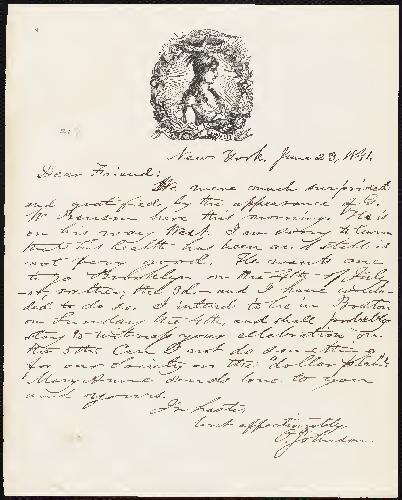 New York, June 23, 1841.
Dear Friend:
We were much surprised
and gratified, by the appearance of
W. here this morning. He is
on his way West. I am sorry to learn
that his health has been and still is
not very good. He wants me
to go Brooklyn on the 4th of July
or, rather, the 3d and I have
ded to do so. I intend to be in Boston
on Sunday the 4th, and shall probably
stay to witness your celebration on
the 5th. Can I not do something
for our County on the "dollar plan".
Mary Anne sends love to you
and yours.
In haste,
very affectionately
O. Johnson.